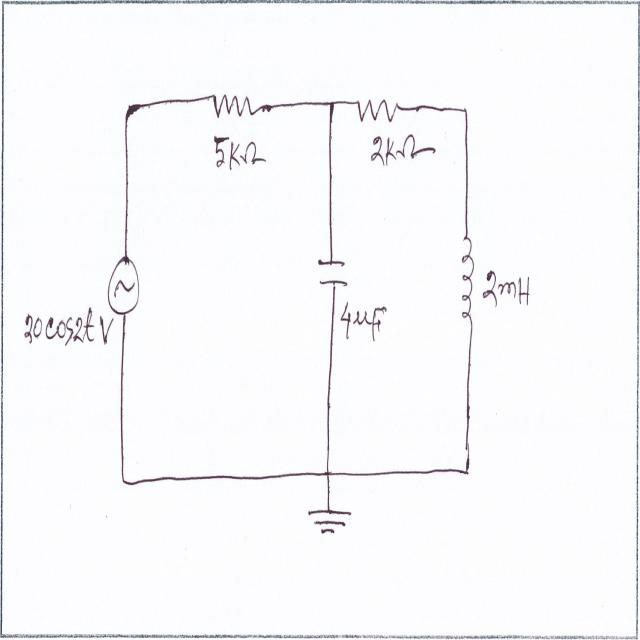 5kΩ
2kΩ
20cos2t V
4uF
2mH